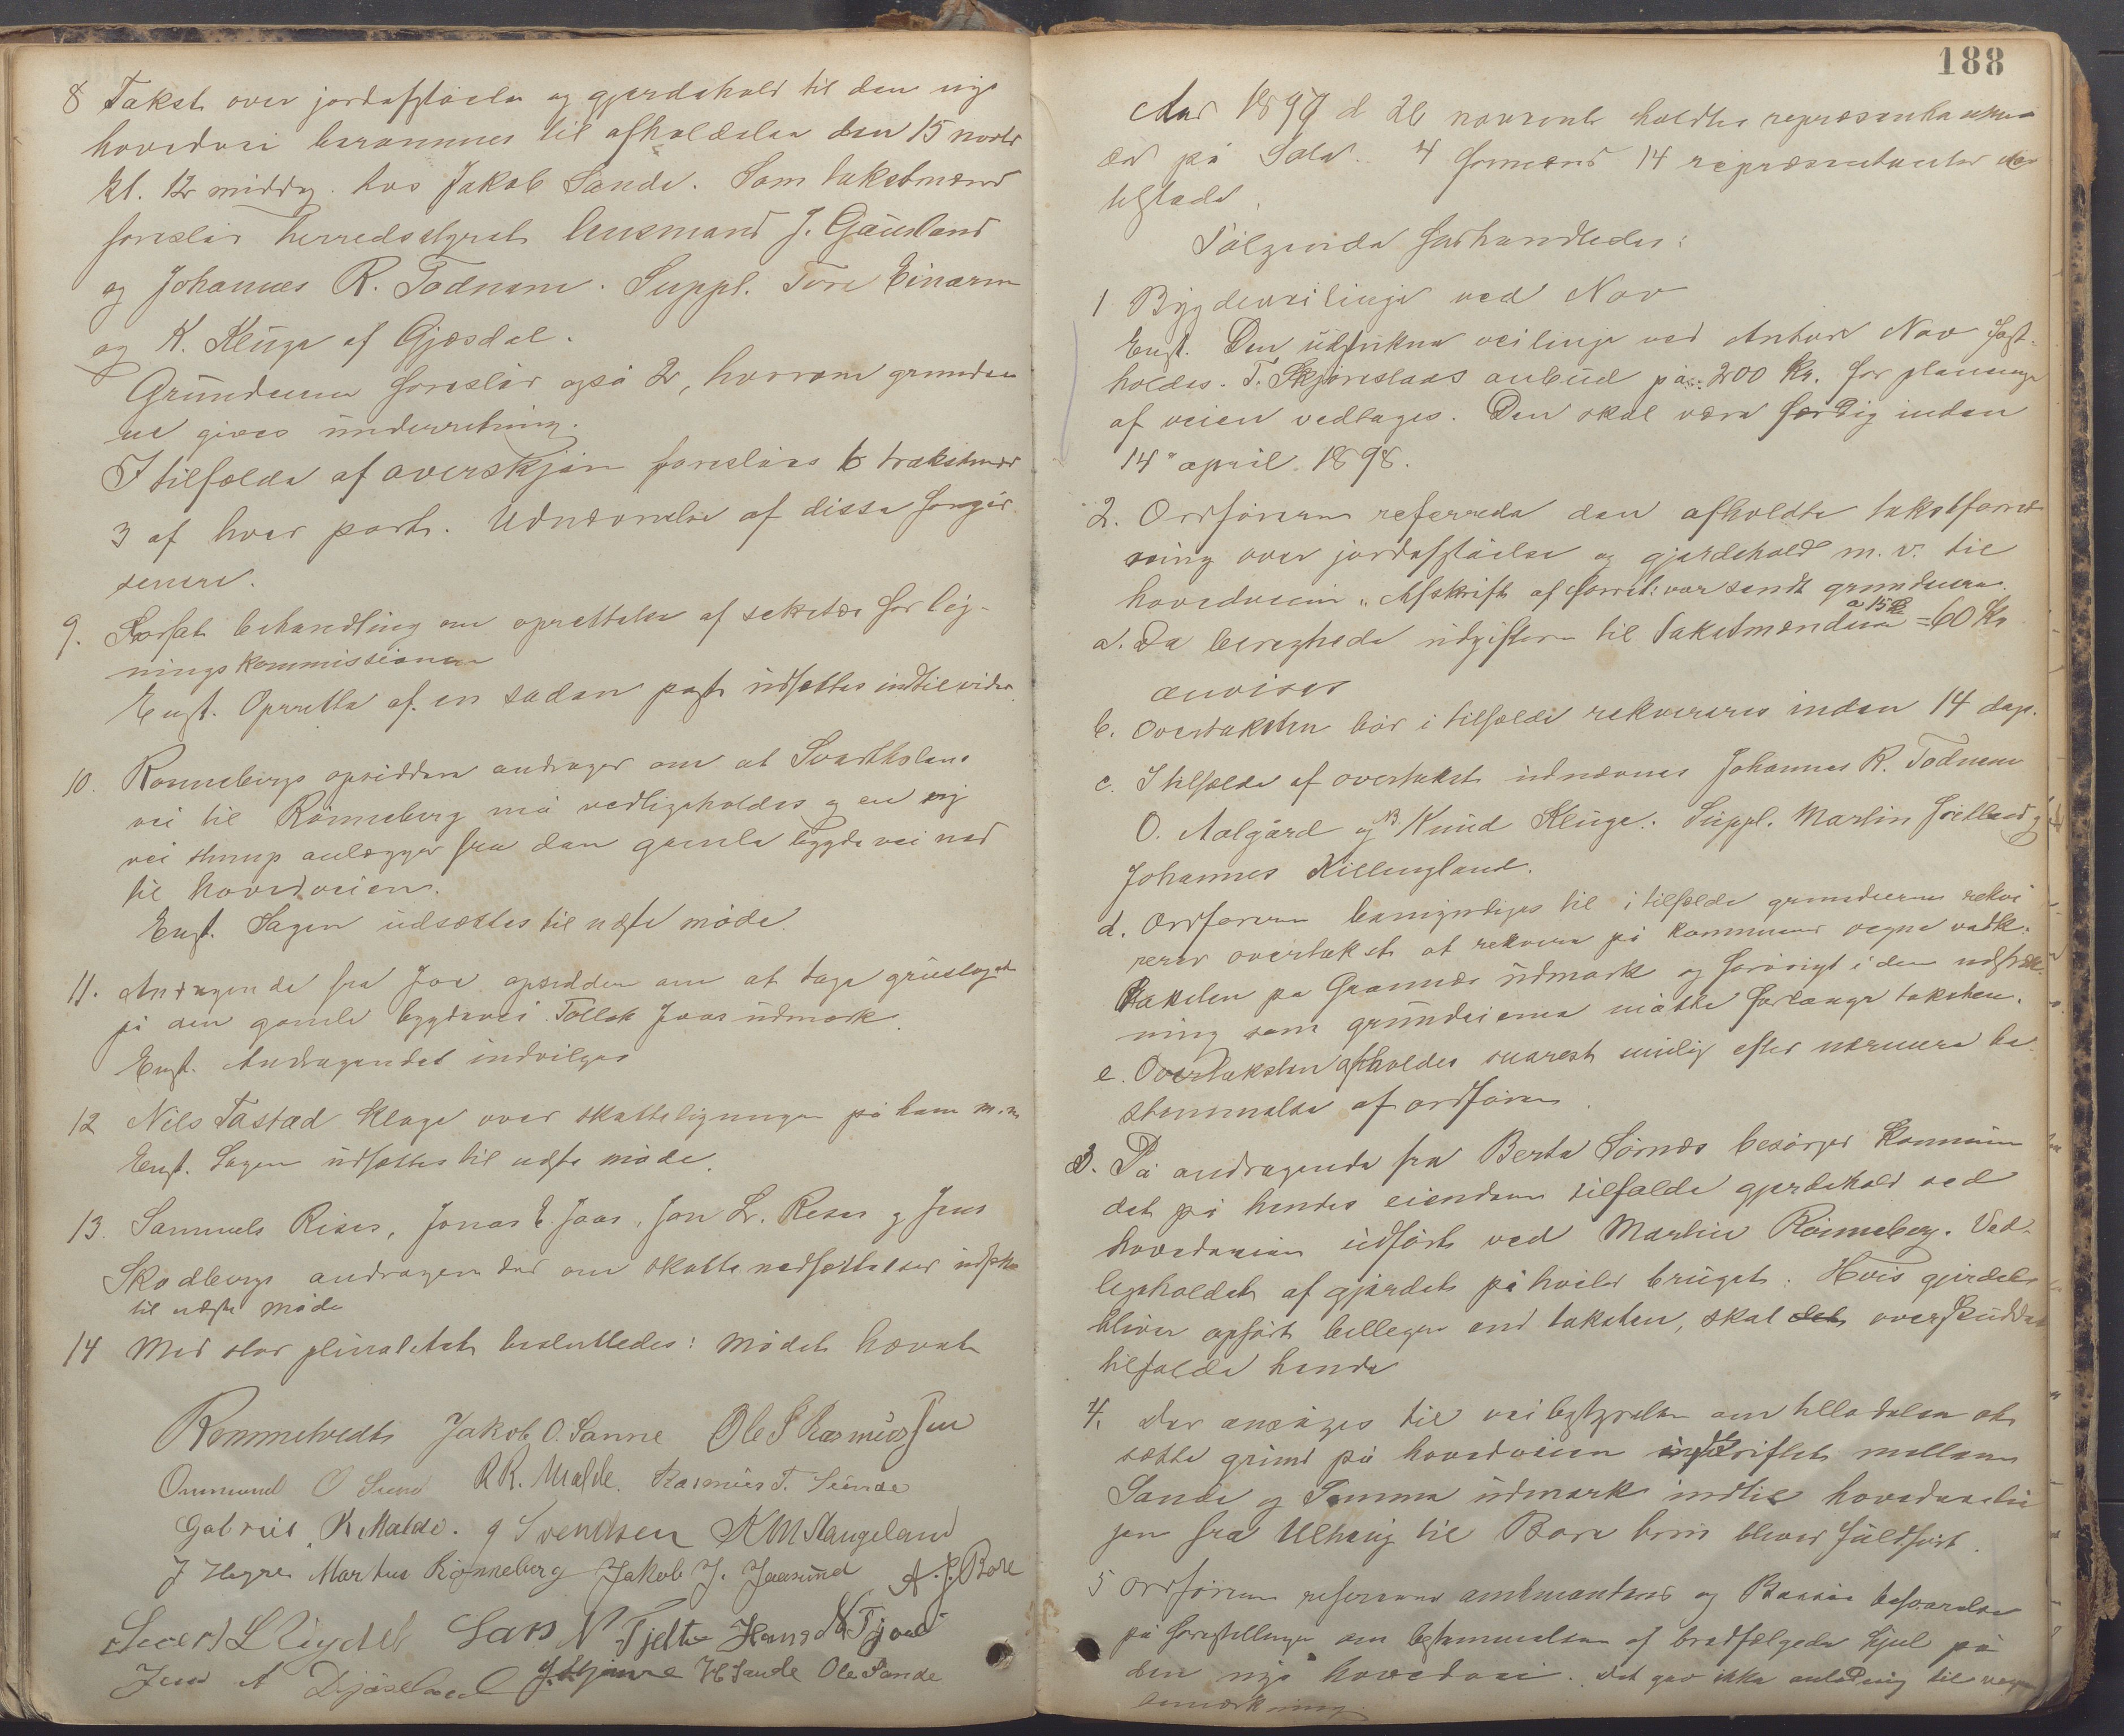 8 Takst over jordafståelse og gjerdehold til den nye
hovedvei berammes til afholdelse den 15 novbr
kl. 12 middag hos Jakob Sande. Som takstmænd
foreslår herredsstyret lensmand J. Gausland
og Johannes R. Todnem. Suppl. Tore Einarsen
og K. Kluge af Gjæsdal.
Grundeierne foreslår også 2, hvorom grundeier
ne gives underretning.
I tilfælde af overskjøn foreslåes 6 trakstmænd
3 af hver part. Udnævnelse af disse foregår
senere.
9. Forsat behandling om oprettelse af sekretær for lig-
ningskommissionen
Enst. Oprette af en sadan post udsættes indtil videre.
10. Rønnebergs opsiddere andrager om at Svertholens
vei til Rønneberg må vedligeholdes og en ny
vei stump anlægges fra den gamle bygdevei ned
til hovedveien.
Enst. Sagen udsættes til næste møde.
11. Andragende fra Joa opsidder om at tage gruslaget
på den gamle bygdevei Tollak Joas udmark.
Enst. Andragendet indvilges
12 Nils Tastad klage over skatteligningen på ham m.m
Enst. Sagen udsættes til næste møde.
13. Samuels Riser, Jonas E. Joas, Jon L. Reses og Jens
Skodbergs andragender om skatte nedsættelser udsættes
til næste møde
14 Med stor pluralitet besluttedes: mødet hævet
Rommetvedt Jakob O. Sanne Ole S Rasmussen
Ommund O Sund R R. Malde. Rasmus T. Sunde
Gabriel R Malde. g Svendsen K M Haugeland
J Hagre Martin Rønneberg Jakob J. Jaasund A. J. Bore
Sivert L Rygdel Lars N Tjelta Hans N Tjora
Jens A J. Skjørve H Sande Ole Sande
188
Aar 1897 d 26 novemb holdtes repræsentantmø
de på Sola. 4 formænd 14 repræsentanter var
tilstede.
Følgende forhandledes:
1 Bygdeveilinje ved Nor
Enst. Den udstukne veilinje ved Antoni Nor fast-
holdes. T. Skjøreslaas anbud på 200 kr. for planering
af veien vedtages. Den skal være færdig inden
14 april 1898.
2. Ordføreren refererede den afholdte takstforret
ning over jordafståelse og gjerdehold m.v. til
hovedveien. Afskrift af forret: var sendt grundeierne.
a. De beregnede utgifter til Takstmændene a 15 = 60 Kr
anvises
b. Overtaksten bør i tilfælde rekvireres inden 14 dage.
c. I tilfælde af overtakst udnævnes Johannes R. Todnem
O. Aalgård og NB Knud Kluge. Suppl. Martin Fuetland og
Johannes Killingland.
d. Ordføreren bemyndiges til i tilfælde grundeierne rekvi
rerer overtakst at rekvirere på kommunens vegne vedk.
Taksten på Grannes udmark og forøvrigt i den udstræk
ning som grundeierne måtte forlange taksten.
e. Overtaksten afholdes snarest mulig efter nærmere be
stemmelse af ordfører.
3. På andragende fra Berta Sømes besørger Kommun
det på hendes eiendom tilfalde gjerdehold ved
hovedveien udført ved Martin Rønneberg. Ved-
legeholdet af gjerdet påhviler bruget. Hvis gjerdet
bliver opført billegere end taksten, skal det overskuddet
tilfalde hende
4. Der ansøges til veibestyrelsen om tilladelse at
sætte grind på hovedveien mellem
Sande og Sømme udmark indtil hovedveslin
jen fra Ulhaug til Bore bru bliver fuldført.
5 Ordføreren refererer amtmandens og besvarelse
på forestillingen om bestemmelsen af bredfælgede hjul på
den nye hovedvei. Det gav ikke anledning til nogen
bemærkning